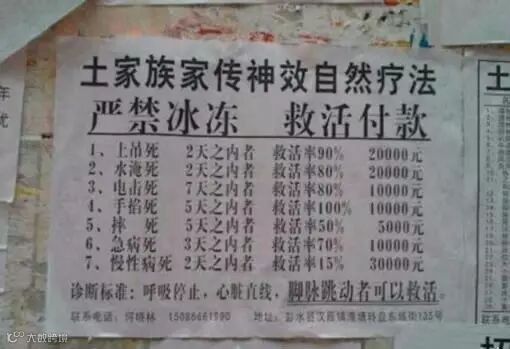 土家族家传神效自然疗法
严禁冰冻 救活付款
1、上吊死 2天之内者 救活率90% 20000元
2、水淹死 2天之内者 救活率80% 20000元
3、电击死 7天之内者 救活率80% 10000元
4、手掐死 5天之内者 救活率100% 10000元
5、摔 死 5天之内者 救活率50% 5000元
6、急病死 3天之内者 救活率70% 10000元
7、慢性病死 2天之内者 救活率15% 30000元
诊断标准：呼吸停止，心脏直线，脚脉跳动者可以救活。
联系电话：何晓林 15086661990 地址：彭水区汉葭镇渔塘转盘东城街125号
土
年
扰
大数跨境